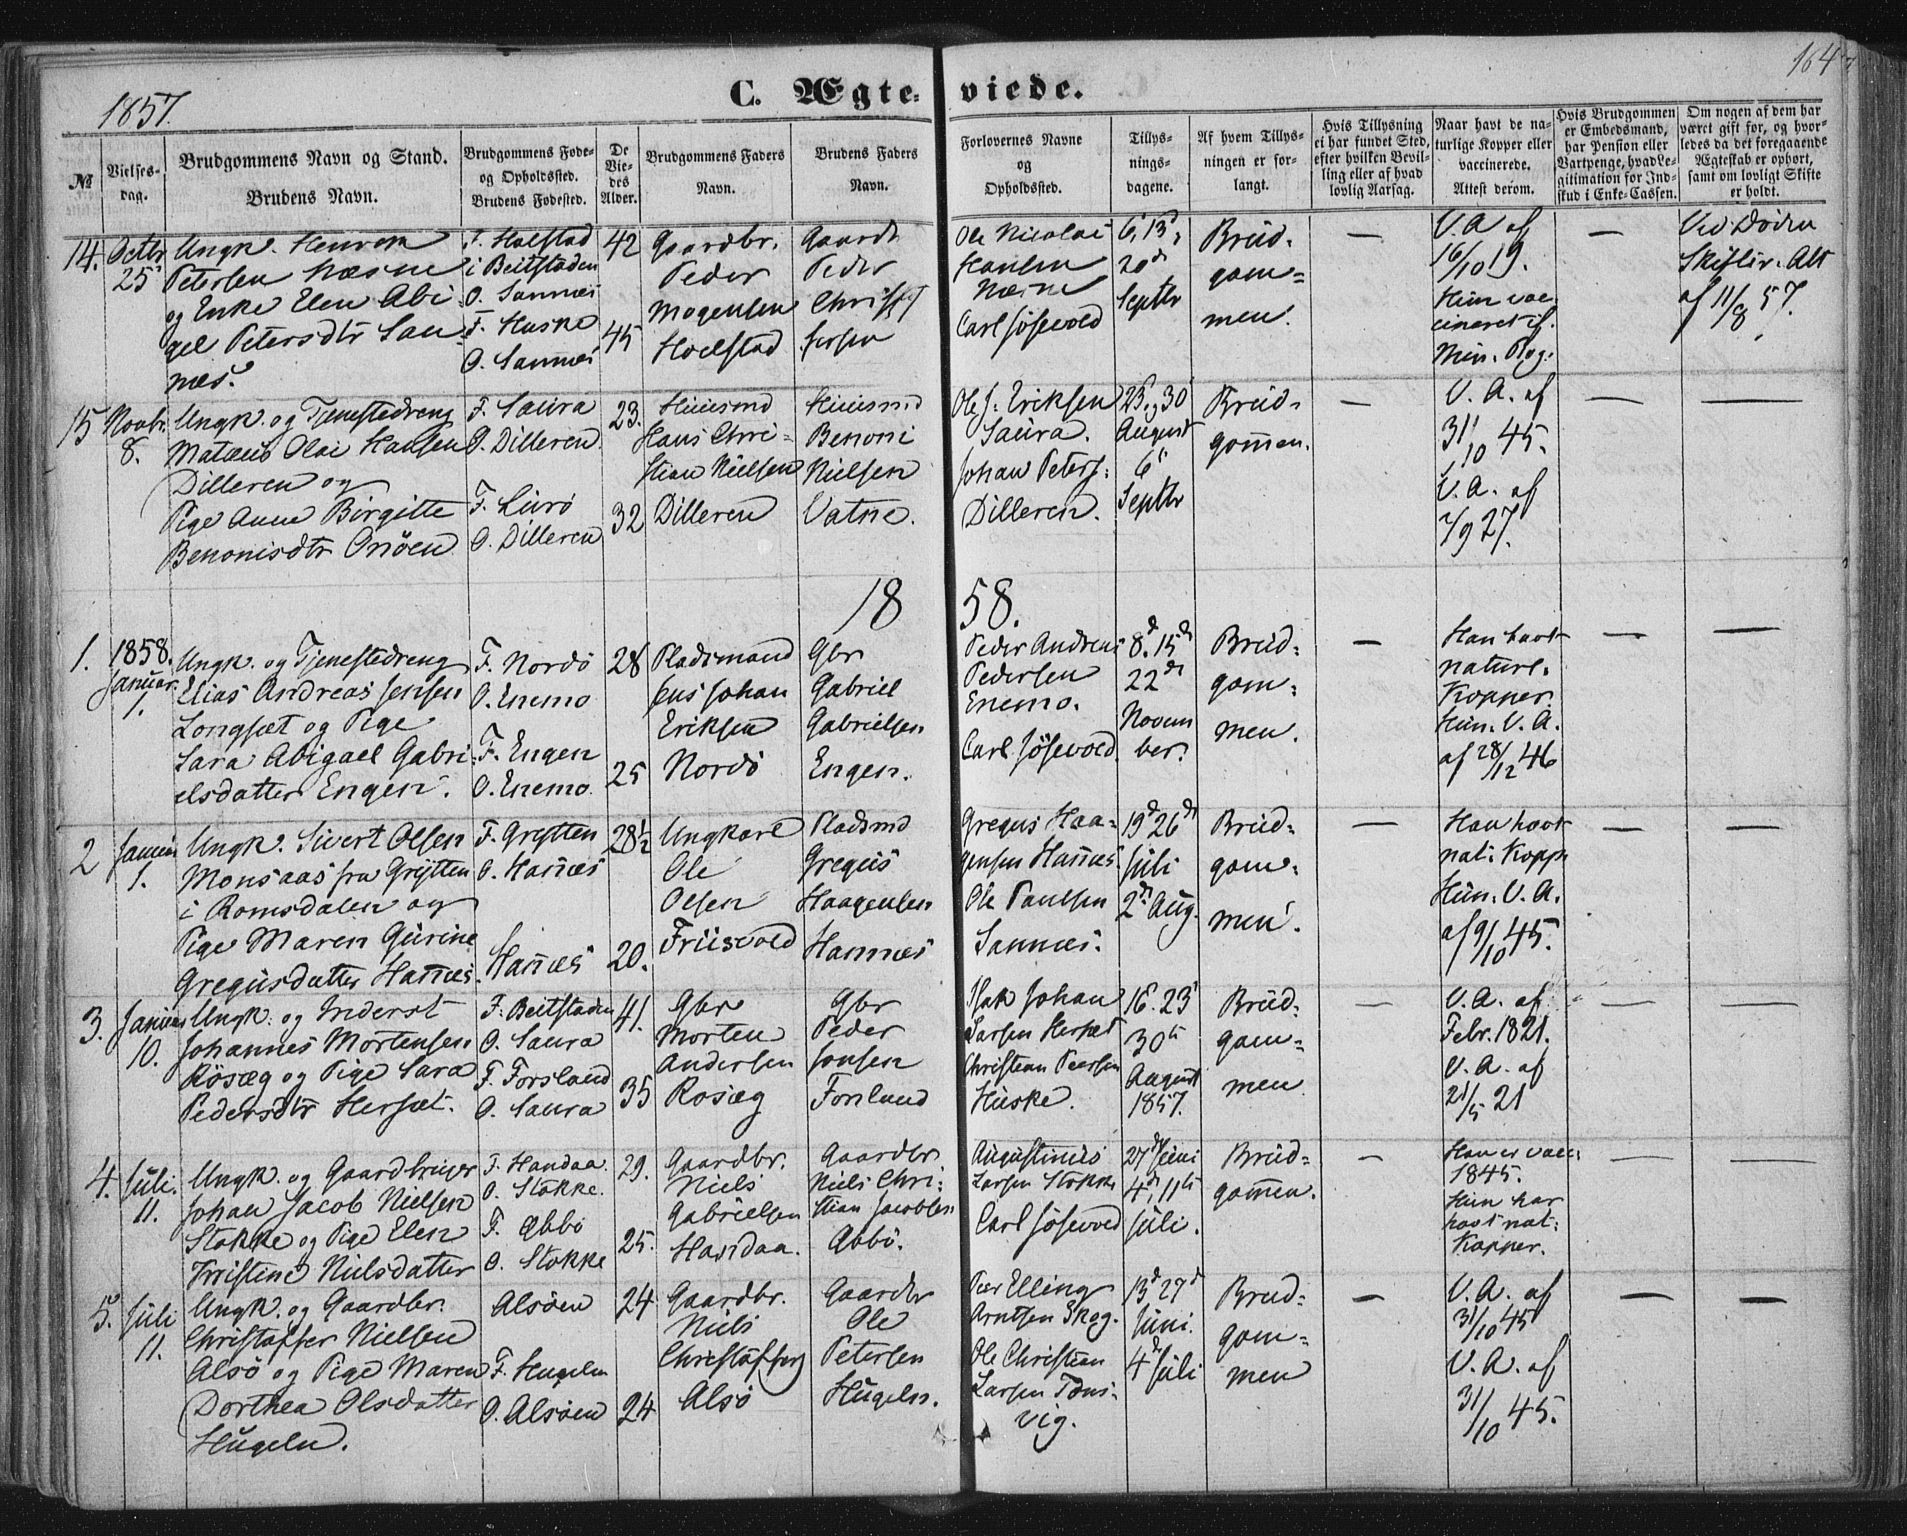 1857.
C. Ægte-viede.
164
№
Vielses-
dag.
Brudgommens Navn og Stand.
Brudens Navn.
Brudgommens Føde-
og Opholdssted.
Brudens Fødested.
De
Vie-
des
Alder.
Brudgommens Faders
Navn.
Brudens Faders
Navn.
Forlovernes Navne
og
Opholdssted.
Tillys-
nings-
dagene.
Af hvem Tillys-
ningen er for-
langt.
Hvis Tillysning
ei har fundet Sted,
efter hvilken Bevil-
ling eller af hvad
lovlig Aarsag.
Naar havt de na-
turlige Kopper eller
vaccinerede.
Attest derom.
Hvis Brudgommen
er Embedsmand,
har Pension eller
Vartpenge, hvad Le-
gitimation for Ind-
skud i Enke-Cassen.
Om nogen af dem har
været gift før, og hvor-
ledes da det foregaaende
Ægteskab er ophørt,
samt om lovligt Skifte
er holdt.
14.
Octbr
25
Ungk.
Petersen Næsne
og Enke Elen Abi
gel Petersdtr San
næs.
F. Holstad
i Beitstaden
O. Sannæs
F. Huske
O. Sannæs
42
45
Gaardbr.
Peder
Mogensen
Hoelstad
Gaardb
Peder
Christ
fersen
Ole Nicolai
Hansen
Næsne
Carl Jøsevold
6, 13,
20de
Septbr
Brud-
gom-
men.
—
V. A. af
16/10 19.
Hun vac
cineret if.
Min. Bog.
—
Ved Døden
Skiftebr. Att
af 11/8 57.
15
Novbr.
8.
Ungk. og Tjenestedreng
Matæus Olai Hansen
Dilleren og
Pige Anne Birgitte
Benonisdtr Onøen
F. Saura
O. Dilleren
F. Lurø
O. Dilleren
23.
32
Huusmd
Hans Chri-
stian Nielsen
Dilleren
Huusmd
Benoni
Nielsen
Vatne.
Ole J. Eriksen
Saura.
Johan Peters:
Dilleren.
23, 30
August
6
Septbr
Brud-
gommen.
—
V. A. af
31/10 45.
V. A. af
7/9 27.
—
—
1858.
1.
1858.
Januar.
1.
Ungk. og Tjenestedreng
Elias Andreas Jensen
Longset og Pige
Sara Abigael Gabri-
elsdatter Engen.
F. Nordø
O. Enemo
F. Engen
O. Enemo.
28
25
Pladsmand
Jens Johan
Eriksen
Nordø
Gbr
Gabriel
Gabrielsen
Engen.
Peder Andreas
Pedersen
Enemo.
Carl Jøsevold
8. 15de
22de
Novem
ber.
Brud-
gom-
men.
—
Han havt
naturl.
Kopper.
Hun. V. A.
af 28/12 46
—
—
2
Januar
1.
Ungk. Sivert Olsen
Monsaas fra Grytten
i Romsdalen og
Pige Maren Gurine
Gregusdatter Hannæs.
F. Grytten
O. Hannæs
Hannæs
28½
20.
Ungkarl
Ole
Olsen
Friisvold
Pladsmd
Gregus
Haagensen
Hannæs
Gregus Haa-
gensen Hannæs
Ole Paulsen
Sannæs.
19de 26de
Juli
2den Aug.
Brud-
gom-
men.
—
Han havt
nat. Kopp
Hun. V. A.
af 9/10 45.
—
—
3.
Januar
10.
Ungk. og Inderst
Johannes Mortensen
Røsæg og Pige Sara
Pedersdtr Herset.
F. Beitstaden
O. Saura
F. Forsland
O. Saura
41.
35
Gbr
Morten
Andersen
Rosæg
Gbr
Peder
Jonsen
Forsland
Isak Johan
Larsen Herset
Christian Peersen
Huske.
16. 23
30te
August
1857.
Brud-
gom-
men.
—
V. A. af
Febr. 1821.
V. A. af
21/5 21
—
—
4.
Juli.
11.
Ungk. og Gaardbruger
Johan Jacob Nielsen
Stokke og Pige Elen
Kristine Nielsdatter
F. Handaa.
O. Stokke.
F. Æbbø
O. Stokke
29.
25.
Gaardbr.
Niels
Gabrielsen
Handaa.
Gaardbr.
Niels Chri-
stian Jacobsen
Æbbø.
Augustinus
Larsen Stokke
Carl Jøsevold
27de Juni
4de, 11te
Juli.
Brud-
gommen.
—
Han er vac.
1845.
Hun har
havt nat.
Kopper.
5.
Juli
11.
Ungk. og Gaardbr.
Christoffer Nielsen
Alsø og Pige Maren
Dorthea Olsdatter
Hugeln.
Alsøen
F. Hugeln
O. Alsøen
24
24
Gaardbr.
Niels
Christoffers
Alsø
Gaardbr
Ole
Petersen
Hugeln.
Peer Elling
Arntsen Skog.
Ole Christian
Larsen Tøns-
vig.
13de 27de
Juni.
4de Juli
Brud-
gom-
men
—
V. A. af
31/10 45
V. A. af
31/10 45.
—
—